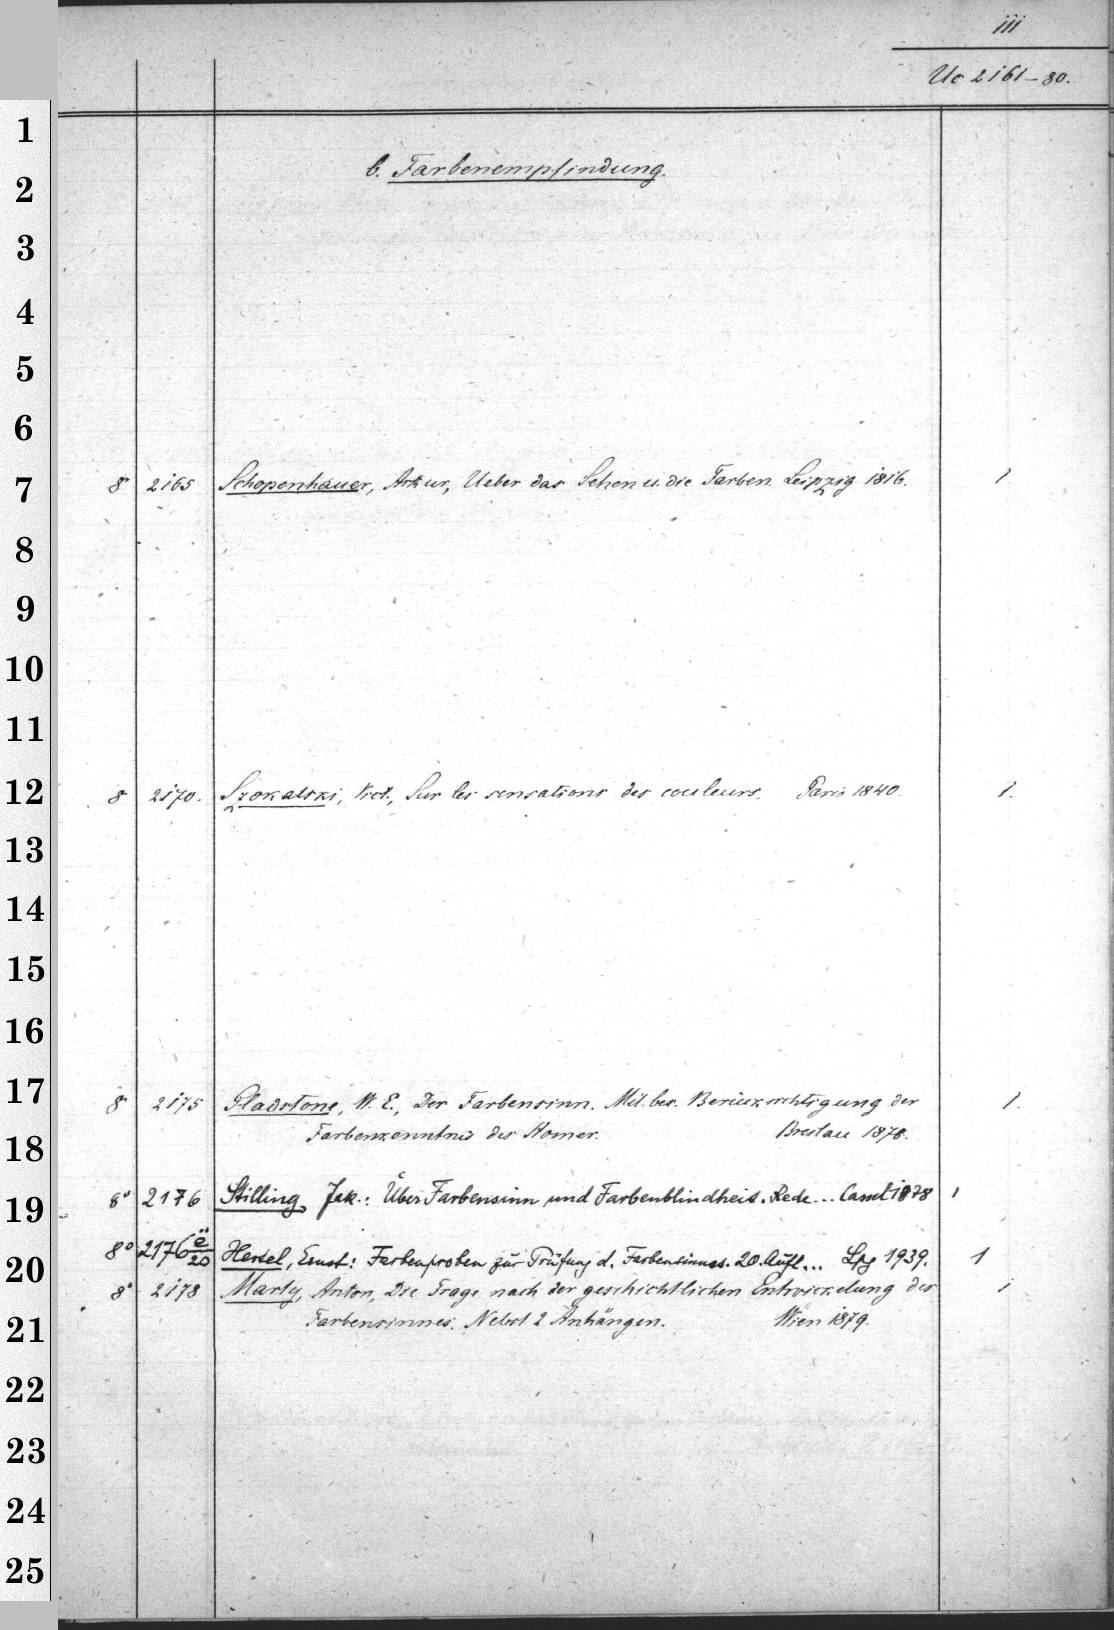 iii
Uc 2161-80.
1
b. Farbenempfindung.
2
3
4
5
6
7 8 2165 Schopenhauer, Arthur, Ueber das Sehen u. die Farben. Leipzig 1816. 1
8
9
10
11
12 8 2170. Szokalski, Vict., Sur les sensations des couleurs. Paris 1840. 1.
13
14
15
16
17 8 2175 Gladstone, W. E., Der Farbensinn. Mit bes. Berücksichtigung der 1.
Farbenkenntnis des Homer. Breslau 1878.
18
19 8° 2176 Stilling, Jak.: Über Farbensinn und Farbenblindheit. Rede... 1878 1
8° 2176 ë/20 Hertel, Ernst: Farbenproben zur Prüfung d. Farbensinnes. 20. Aufl... Lpg 1939. 1
20
8° 2178 Marty, Anton, Die Frage nach der geschichtlichen Entwickelung des 1
21 Farbensinnes. Nebst 2 Anhängen. Wien 1879.
22
23
24
25